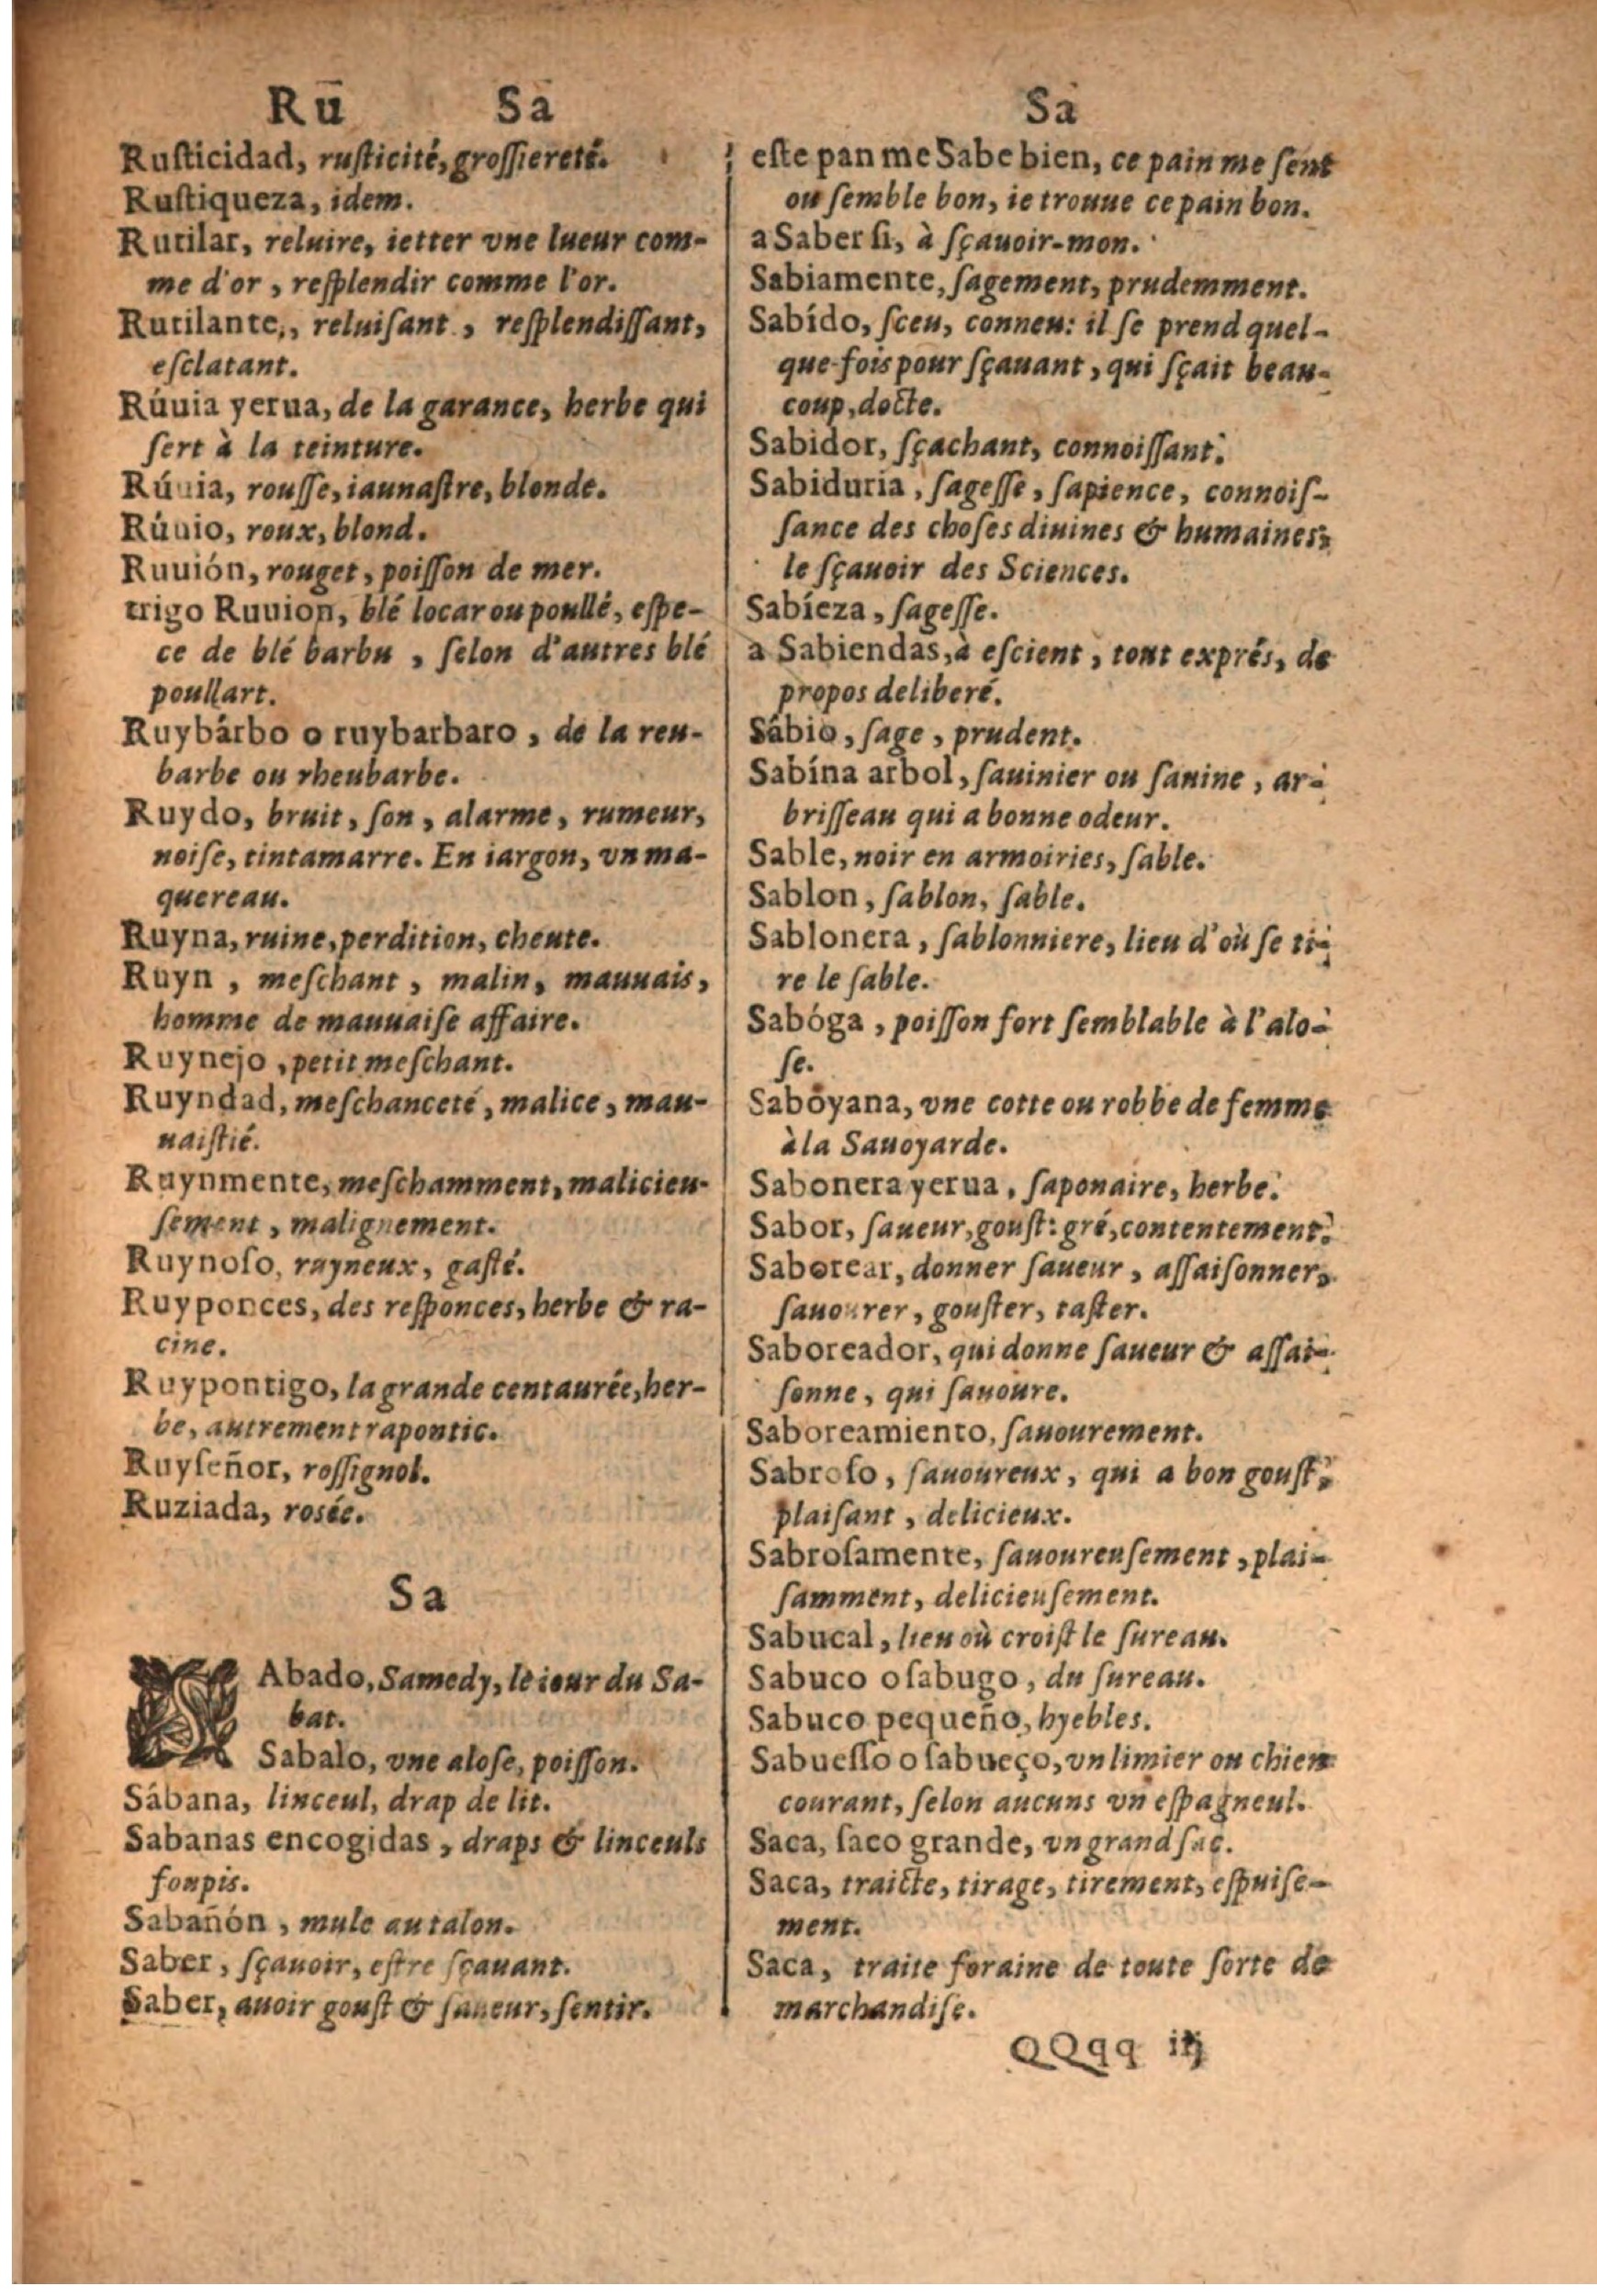 Ru Sa
Ruſticidad, ruſticité, groſſiereté.
Ruſtiqueza, idem.
Rutilar, reluire, ietter vne lueur com-
me d'or, reſplendir comme l'or.
Rutilante, reluiſant, reſplendiſſant,
eſclatant.
Rúuia yerua, de la garance, herbe qui
ſert à la teinture.
Rúuia, rouſſe, iaunaſtre, blonde.
Rúuio, roux, blond.
Ruuión, rouget, poiſſon de mer.
trigo Ruuion, blé locar ou poullé, eſpe-
ce de blé barbu, ſelon d'autres blé
poullart.
Ruybárbo o ruybarbaro, de la reu-
barbe ou rheubarbe.
Ruydo, bruit, ſon, alarme, rumeur,
noiſe, tintamarre. En iargon, vn ma-
quereau.
Ruyna, ruine, perdition, cheute.
Ruyn, meſchant, malin, mauuais,
homme de mauuaiſe affaire.
Ruynejo, petit meſchant.
Ruyndad, meſchanceté, malice, mau-
uaiſtié.
Ruynmente, meſchamment, malicieu-
ſement, malignement.
Ruynoſo, ruyneux, gaſté.
Ruyponces, des reſponces, herbe & ra-
cine.
Ruypontigo, la grande centaurée, her-
be, autrement rapontic.
Ruyſeñor, roſſignol.
Ruziada, rosée.
Sa
SAbado, Samedy, le iour du Sa-
bat.
Sabalo, vne aloſe, poiſſon.
Sábana, linceul, drap de lit.
Sabanas encogidas, draps & linceuls
foupis.
Sabañón, mule au talon.
Saber, ſçauoir, eſtre ſçauant.
Saber, auoir gouſt & ſaueur, ſentir.
Sa
eſte pan me Sabe bien, ce pain me ſent
ou ſemble bon, ie trouue ce pain bon.
a Saber ſi, à ſçauoir-mon.
Sabiamente, ſagement, prudemment.
Sabído, ſceu, conneu: il ſe prend quel-
que-fois pour ſçauant, qui ſçait beau-
coup, docte.
Sabidor, ſçachant, connoiſſant.
Sabiduria, ſageſſe, ſapience, connoiſ-
ſance des choſes diuines & humaines,
le ſçauoir des Sciences.
Sabíeza, ſageſſe.
a Sabiendas, à eſcient, tout exprés, de
propos deliberé.
Sábio, ſage, prudent.
Sabína arbol, ſauinier ou ſauine, ar-
briſſeau qui a bonne odeur.
Sable, noir en armoiries, ſable.
Sablon, ſablon, ſable.
Sablonera, ſablonniere, lieu d'où ſe ti-
re le ſable.
Sabóga, poiſſon fort ſemblable à l'alo-
ſe.
Sabóyana, vne cotte ou robbe de femme
à la Sauoyarde.
Sabonera yerua, ſaponaire, herbe.
Sabor, ſaueur, gouſt: gré, contentement.
Saborear, donner ſaueur, aſſaiſonner,
ſauourer, gouſter, taſter.
Saboreador, qui donne ſaueur & aſſai-
ſonne, qui ſauoure.
Saboreamiento, ſauourement.
Sabroſo, ſauoureux, qui a bon gouſt,
plaiſant, delicieux.
Sabroſamente, ſauoureuſement, plai-
ſamment, delicieuſement.
Sabucal, lieu où croiſt le ſureau.
Sabuco o ſabugo, du ſureau.
Sabuco pequeño, hyebles.
Sabueſſo o ſabueço, vn limier ou chien
courant, ſelon aucuns vn eſpagneul.
Saca, ſaco grande, vn grand ſac.
Saca, traicte, tirage, tirement, eſpuiſe-
ment.
Saca, traite foraine de toute ſorte de
marchandiſe.
QQqq iij